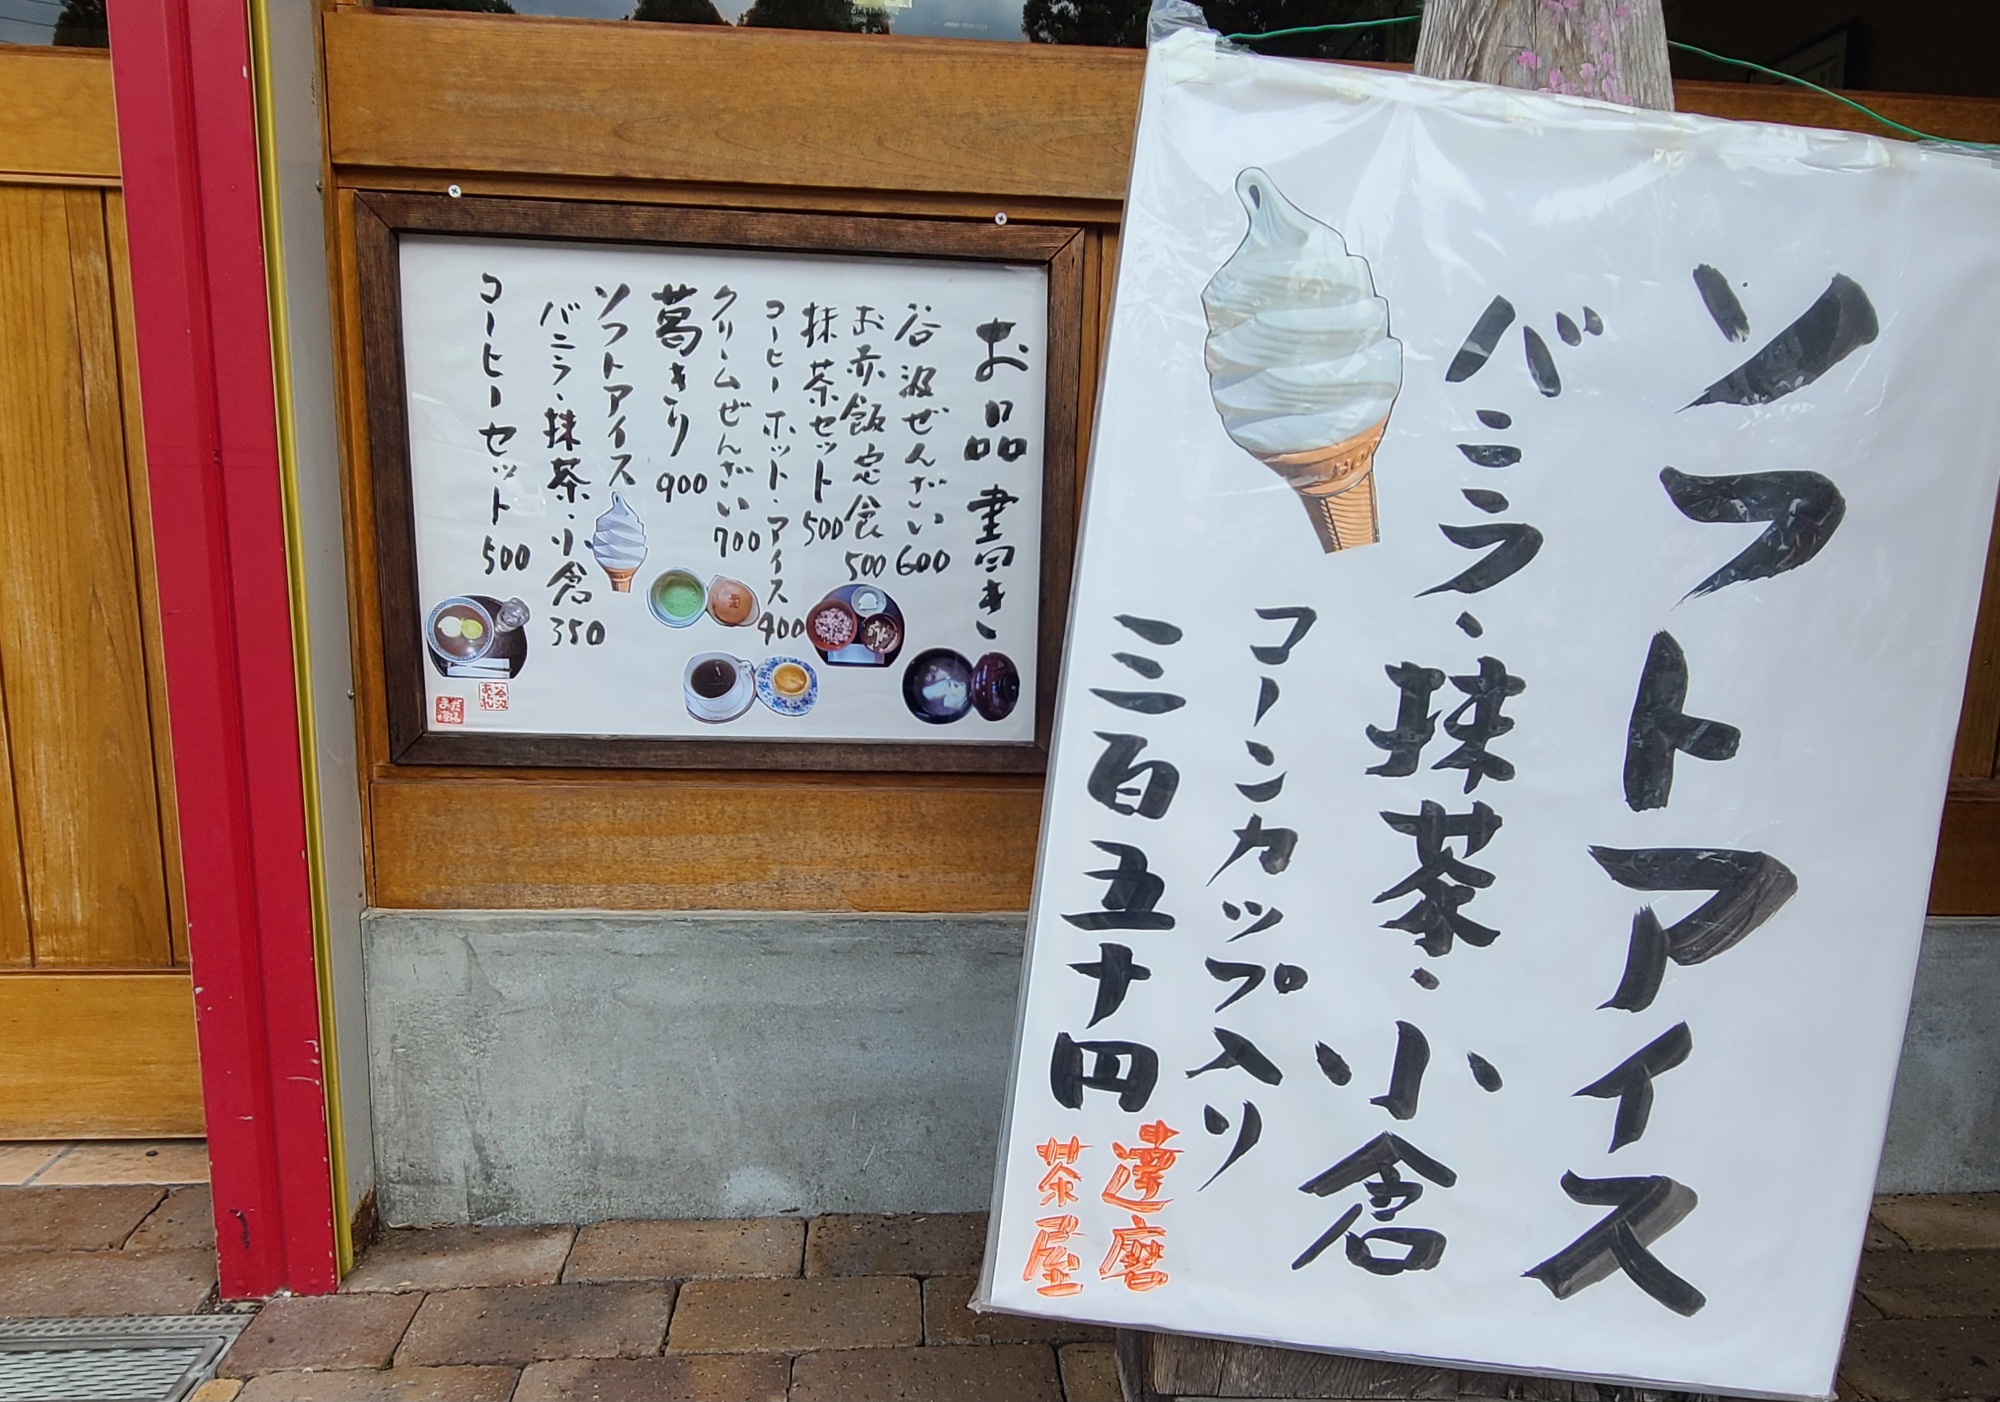 お品書き
谷汲ぜんざい 600
お赤飯定食 500
抹茶セット 500
コーヒーホット・アイス 400
クリームぜんざい 700
葛きり 900
ソフトアイス
バニラ・抹茶・小倉 350
コーヒーセット 500
ソフトアイス
バニラ・抹茶・小倉
コーンカップ入り
三百五十円
達磨
茶屋